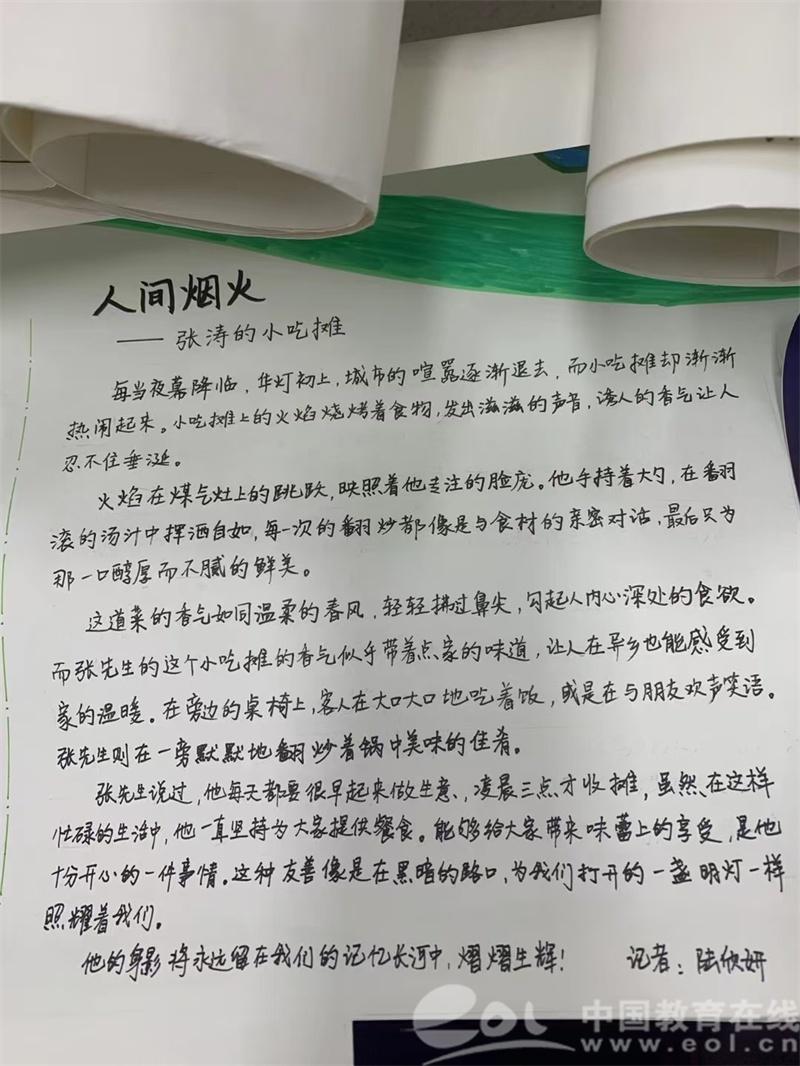 人间烟火
——张涛的小吃摊
每当夜幕降临，华灯初上，城市的喧嚣逐渐退去，而小吃摊却渐渐
热闹起来。小吃摊上的火焰烧烤着食物，发出滋滋的声音，诱人的香气让人
忍不住垂涎。
火焰在煤气灶上的跳跃，映照着他专注的脸庞。他手持着大勺，在翻
滚的汤汁中挥洒自如，每一次的翻炒都像是与食材的亲密对话，最后只为
那一口醇厚而不腻的鲜美。
这道菜的香气如同温柔的春风，轻轻拂过鼻尖，勾起人内心深处的食欲。
而张先生的这个小吃摊的香气似乎带着点家的味道，让人在异乡也能感受到
家的温暖。在旁边的桌椅上，客人在大口大口地吃着饭，或是在与朋友欢声笑语。
张先生则在一旁默默地翻炒着锅中美味的佳肴。
张先生说过，他每天都要很早起来做生意，凌晨三点才收摊，虽然在这样
忙碌的生活中，他一直坚持为大家提供餐食。能够给大家带来味蕾上的享受，是他
十分开心的一件事情。这种友善像是在黑暗的路口，为我们打开的一盏明灯一样
照耀着我们。
他的身影将永远留在我们的记忆长河中，熠熠生辉！ 记者：陆欣妍
eol 中国教育在线
www.eol.cn